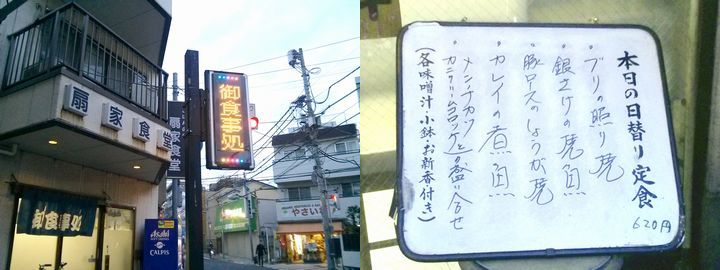 扇家食堂
扇家食堂
御食事処
御食事処
Asahi
CALPIS
やさい
本日の日替り定食
620円
・ブリの照り焼
・銀さけの焼魚
・豚ロースのしょうが焼
・カレイの煮魚
・メンチカツと
カニクリームコロッケの盛り合せ
(各味噌汁・小鉢・お新香付き)